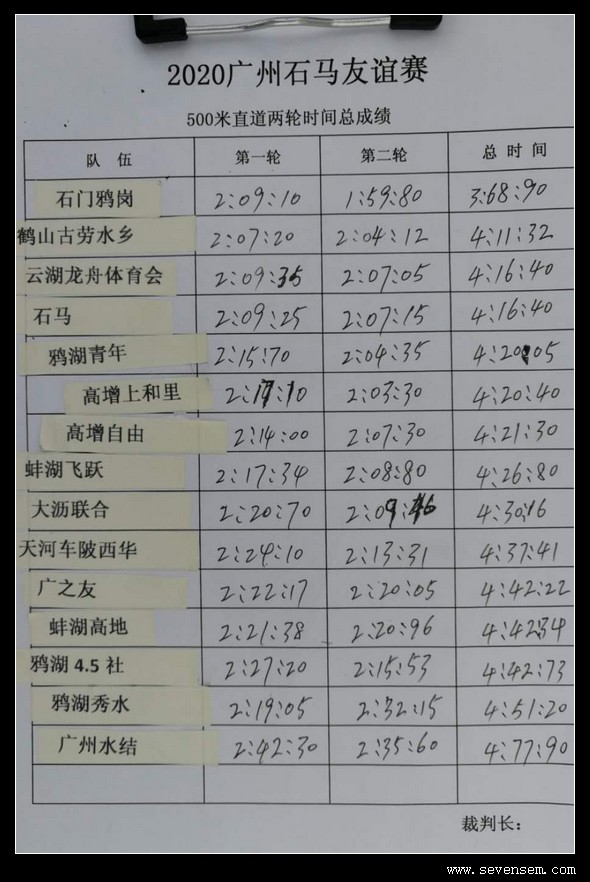 2020广州石马友谊赛
500米直道两轮时间总成绩
队 伍 第一轮 第二轮 总 时 间
石门鸦岗 2:09:10 1:59:80 3:68:90
鹤山古劳水乡 2:07:20 2:04:12 4:11:32
云湖龙舟体育会 2:09:35 2:07:05 4:16:40
石马 2:09:25 2:07:15 4:16:40
鸦湖青年 2:15:70 2:04:35 4:20:05
高增上和里 2:17:10 2:03:30 4:20:40
高增自由 2:14:00 2:07:30 4:21:30
蚌湖飞跃 2:17:34 2:08:80 4:26:80
大沥联合 2:20:70 2:09:46 4:30:16
天河车陂西华 2:24:10 2:13:31 4:37:41
广之友 2:22:17 2:20:05 4:42:22
蚌湖高地 2:21:38 2:20:96 4:42:34
鸦湖 4.5 社 2:27:20 2:15:53 4:42:73
鸦湖秀水 2:19:05 2:32:15 4:51:20
广州水结 2:42:30 2:35:60 4:77:90
裁判长：
www.sevensem.com